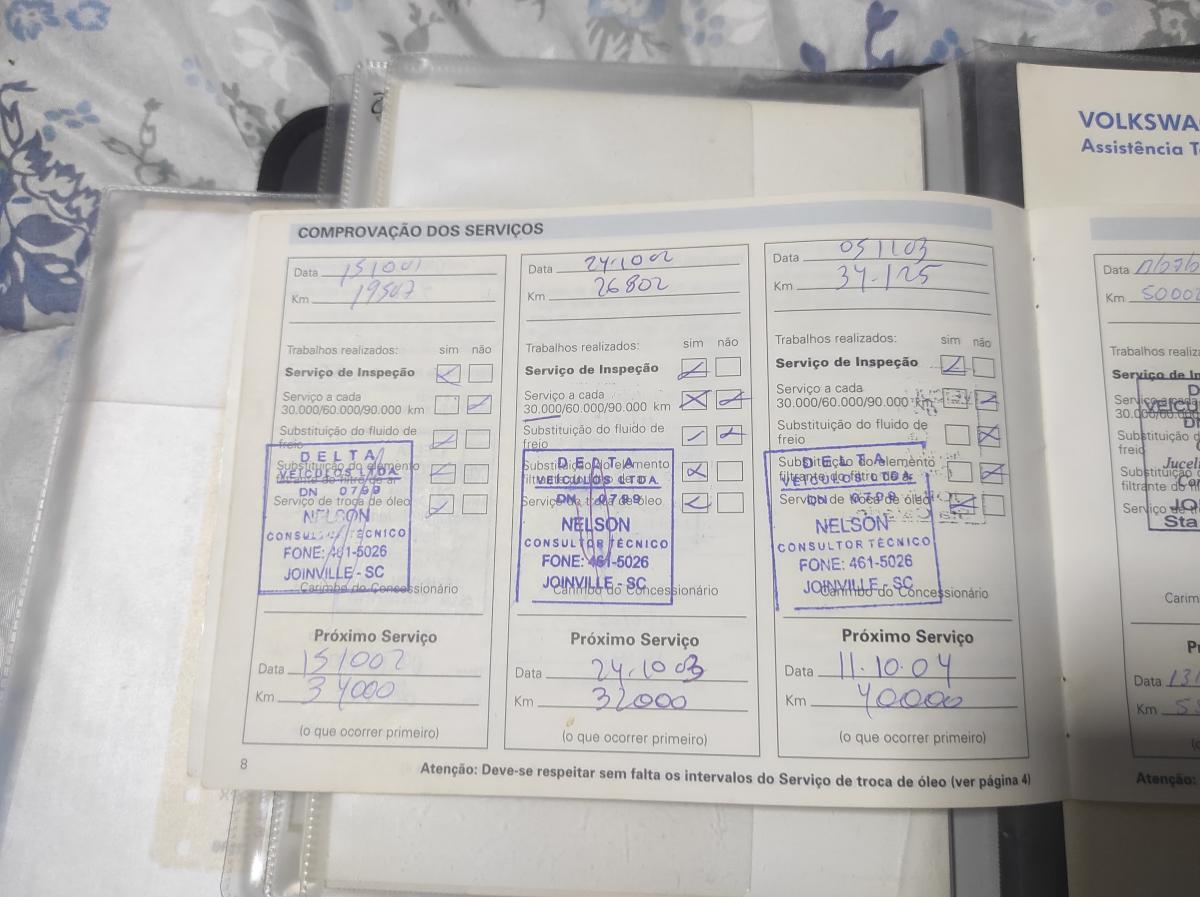 VOLKSWA
Assistência T
COMPROVAÇÃO DOS SERVIÇOS
Data 151001
Km 19507
Trabalhos realizados: sim não
Serviço de Inspeção
Serviço a cada
30.000/60.000/90.000 km
Substituição do fluido de
freio
Substituição do elemento
filtrante do filtro de ar
Serviço de troca de óleo
DELTA
VEÍCULOS LTDA
DN 0799
NELSON
CONSULTOR TÉCNICO
FONE: 461-5026
JOINVILLE - SC
Carimbo do Concessionário
Próximo Serviço
Data 151002
Km 34000
(o que ocorrer primeiro)
Data 24.10.02
Km 26802
Trabalhos realizados: sim não
Serviço de Inspeção
Serviço a cada
30.000/60.000/90.000 km
Substituição do fluido de
freio
Substituição do elemento
filtrante do filtro de ar
Serviço de troca de óleo
DELTA
VEÍCULOS LTDA
DN 0799
NELSON
CONSULTOR TÉCNICO
FONE: 461-5026
JOINVILLE - SC
Carimbo do Concessionário
Próximo Serviço
Data 24.10.03
Km 32000
(o que ocorrer primeiro)
Data 051103
Km 34.125
Trabalhos realizados: sim não
Serviço de Inspeção
Serviço a cada
30.000/60.000/90.000 km
Substituição do fluido de
freio
Substituição do elemento
filtrante do filtro de ar
Serviço de troca de óleo
DELTA
VEÍCULOS LTDA
DN 0799
NELSON
CONSULTOR TÉCNICO
FONE: 461-5026
JOINVILLE - SC
Carimbo do Concessionário
Próximo Serviço
Data 11.10.04
Km 40000
(o que ocorrer primeiro)
8
Atenção: Deve-se respeitar sem falta os intervalos do Serviço de troca de óleo (ver página 4)
Data
Km 50002
Trabalhos realiza
Serviço de In
Substituição d
freio
Substituição
filtrante do fi
Carim
Data 131
Km
Atenção: